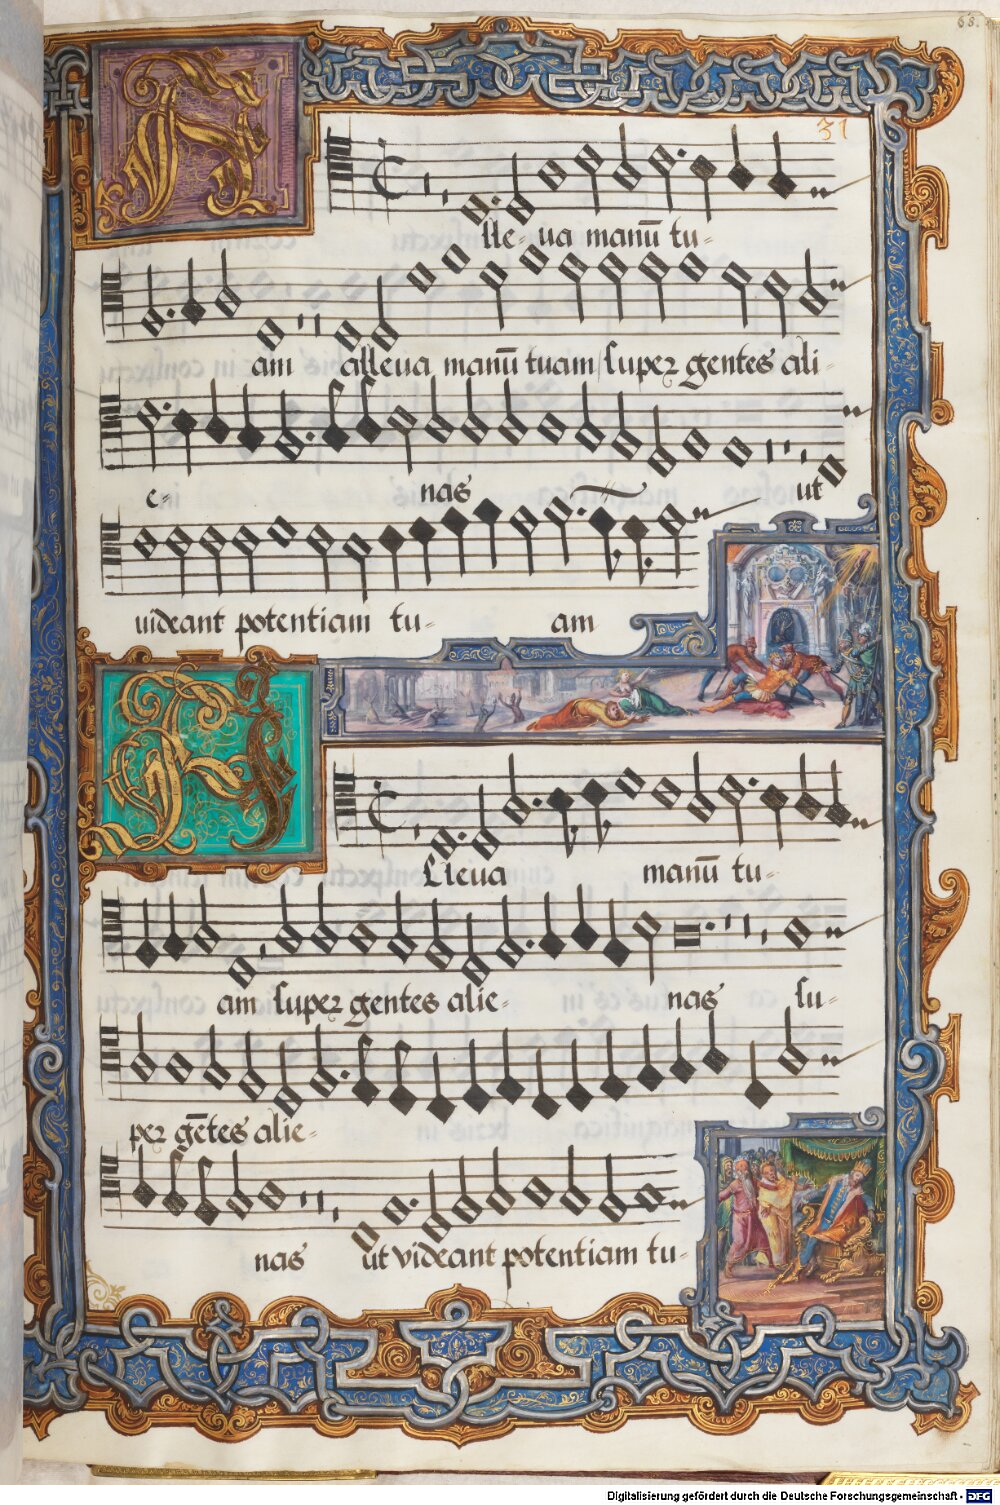 68.
31
Alleva manū tu-
am alleva manū tuam / super gentes ali-
e- nas ut
videant potentiam tu- am
Alleva manū tu-
am super gentes alie- nas su-
per gētes alie-
nas ut videant potentiam tu-
Digitalisierung gefördert durch die Deutsche Forschungsgemeinschaft - DFG